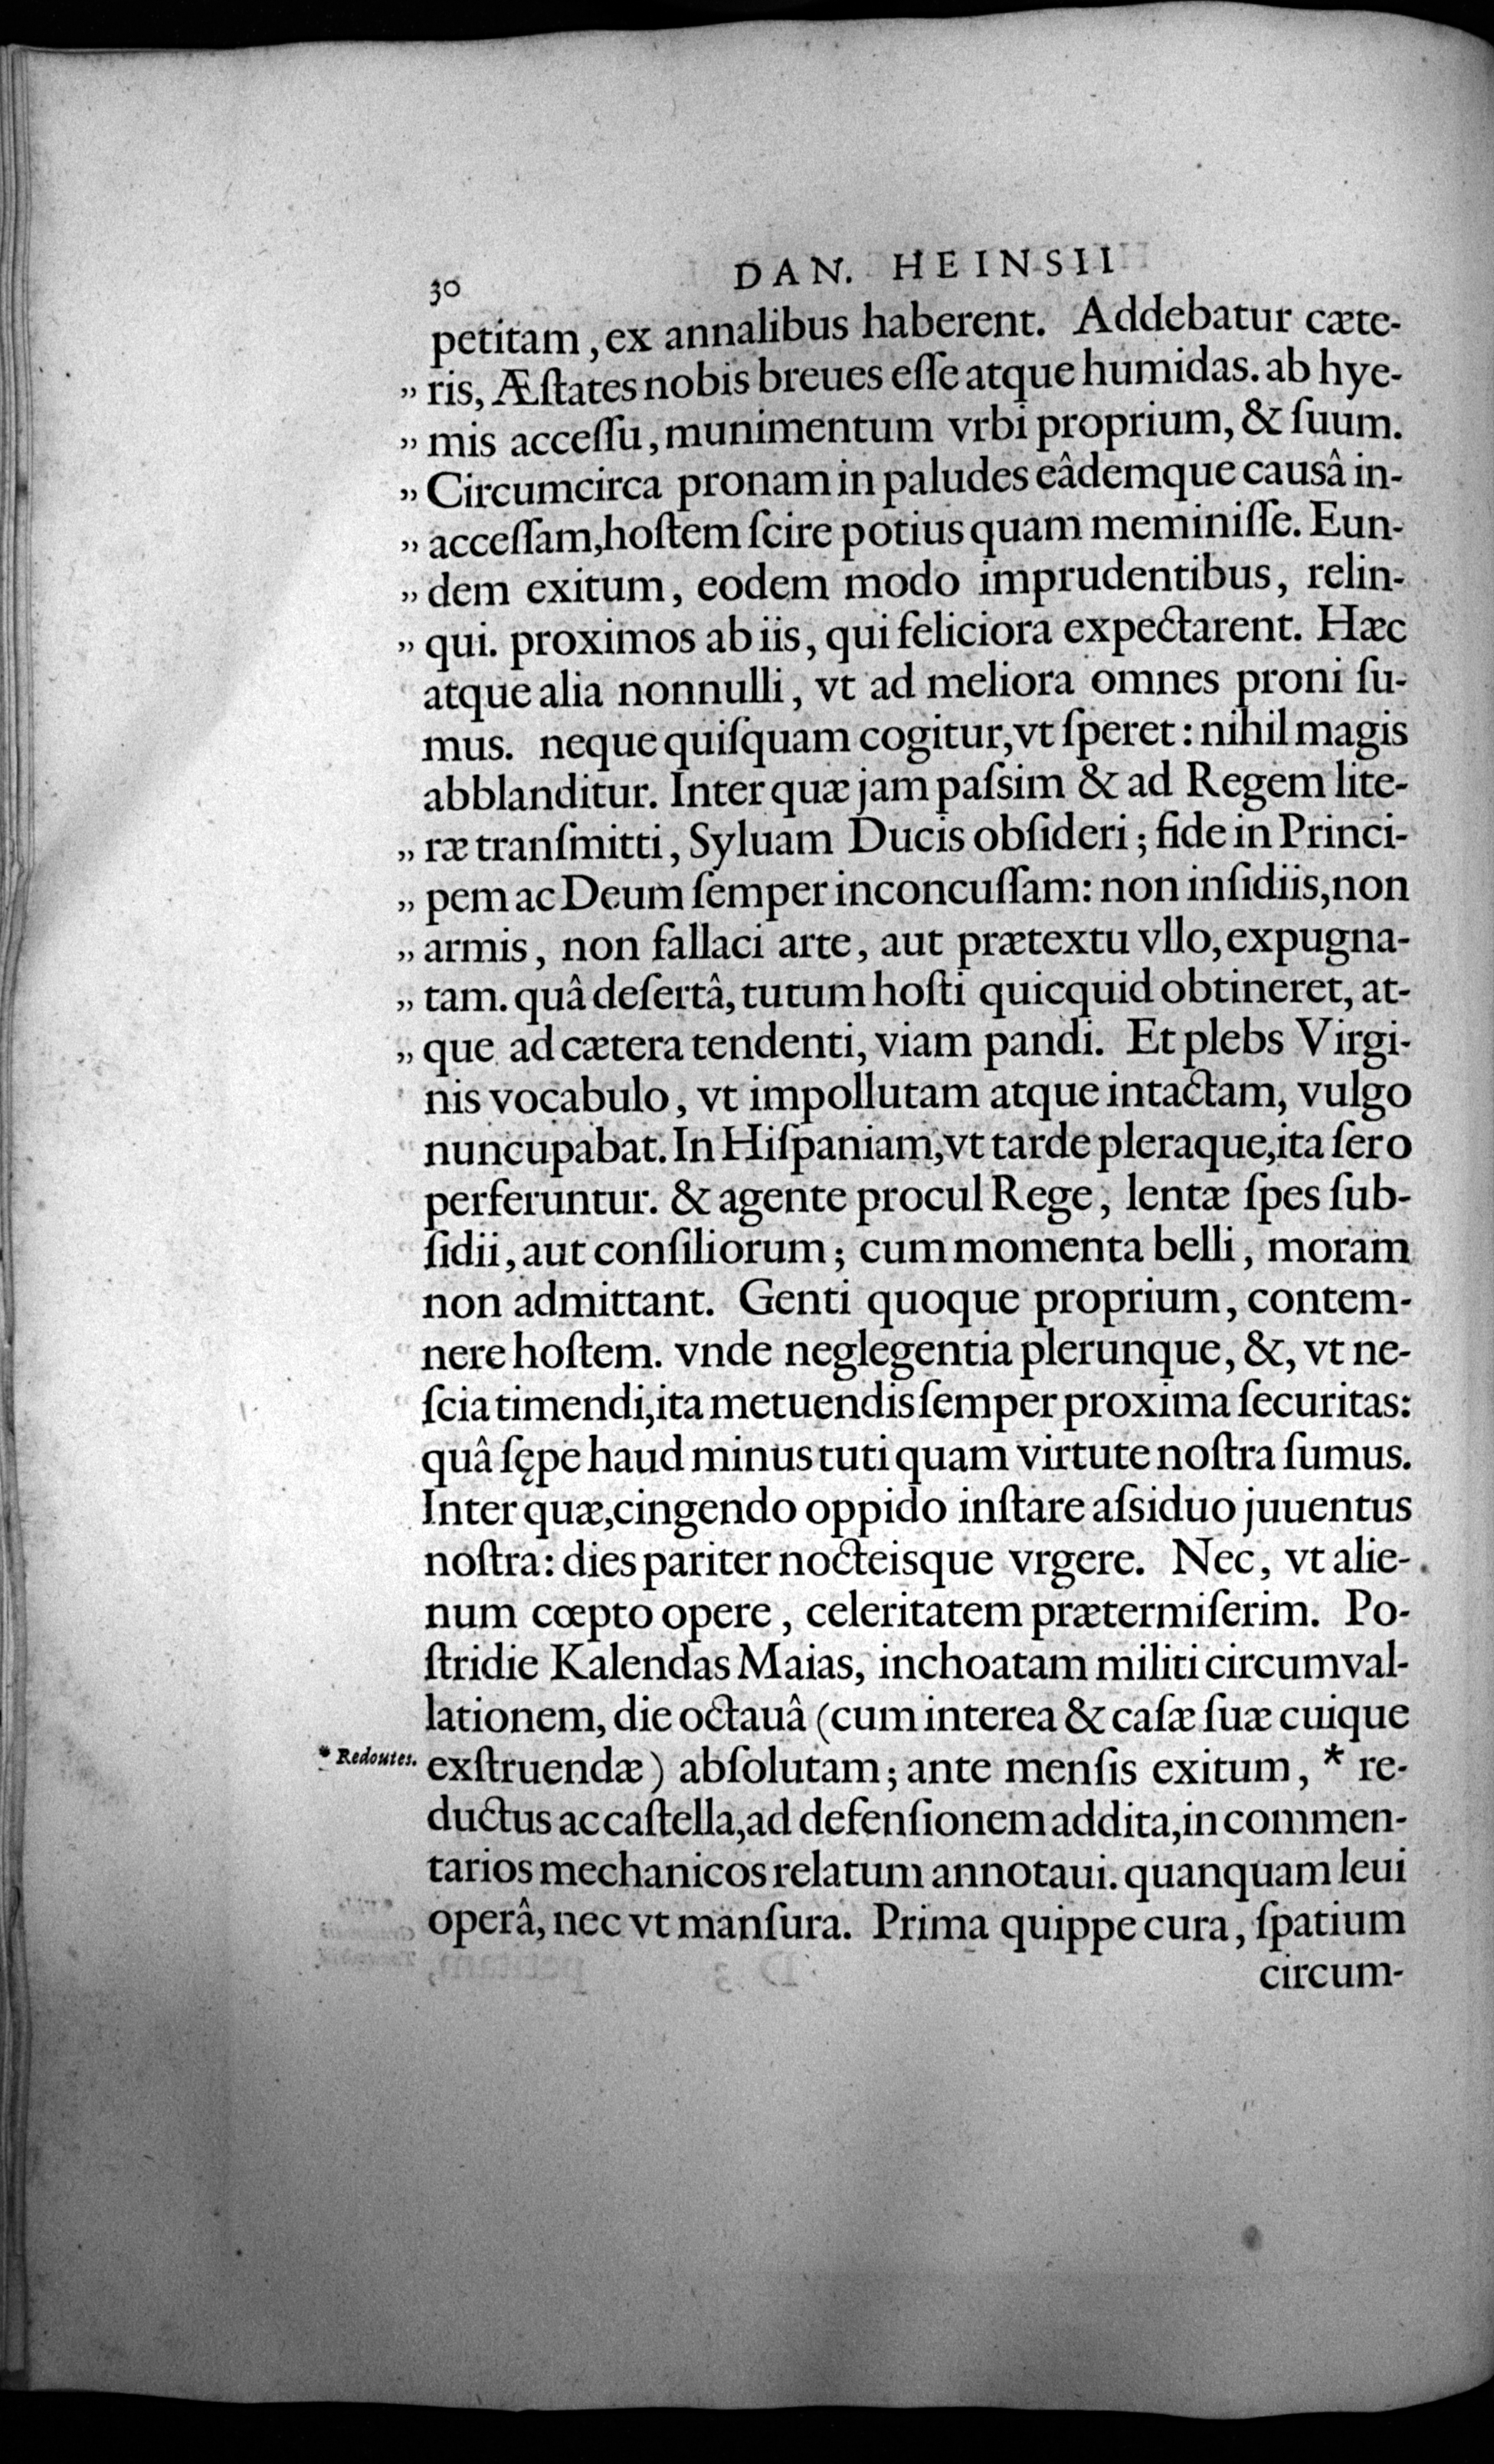 30 DAN. HEINSII
petitam, ex annalibus haberent. Addebatur cæte-
„ ris, Æſtates nobis breues eſſe atque humidas. ab hye-
„ mis acceſſu, munimentum vrbi proprium, & ſuum.
„ Circumcirca pronam in paludes eâdemque causâ in-
„ acceſſam, hoſtem ſcire potius quam meminiſſe. Eun-
„ dem exitum, eodem modo imprudentibus, relin-
„ qui. proximos ab iis, qui feliciora expectarent. Hæc
atque alia nonnulli, vt ad meliora omnes proni ſu-
mus. neque quiſquam cogitur, vt ſperet: nihil magis
abblanditur. Inter quæ jam paſsim & ad Regem lite-
„ ræ tranſmitti, Syluam Ducis obſideri; fide in Princi-
„ pem ac Deum ſemper inconcuſſam: non inſidiis, non
„ armis, non fallaci arte, aut prætextu vllo, expugna-
„ tam. quâ deſertâ, tutum hoſti quicquid obtineret, at-
„ que ad cætera tendenti, viam pandi. Et plebs Virgi-
nis vocabulo, vt impollutam atque intactam, vulgo
nuncupabat. In Hiſpaniam, vt tarde pleraque, ita ſero
perferuntur. & agente procul Rege, lentæ ſpes ſub-
ſidii, aut conſiliorum; cum momenta belli, moram
non admittant. Genti quoque proprium, contem-
nere hoſtem. vnde neglegentia plerunque, &, vt ne-
ſcia timendi, ita metuendis ſemper proxima ſecuritas:
quâ ſępe haud minus tuti quam virtute noſtra ſumus.
Inter quæ, cingendo oppido inſtare aſsiduo juuentus
noſtra: dies pariter nocteisque vrgere. Nec, vt alie-
num cœpto opere, celeritatem prætermiſerim. Po-
ſtridie Kalendas Maias, inchoatam militi circumval-
lationem, die octauâ (cum interea & caſæ ſuæ cuique
* Redoutes. exſtruendæ) abſolutam; ante menſis exitum, * re-
ductus ac caſtella, ad defenſionem addita, in commen-
tarios mechanicos relatum annotaui. quanquam leui
operâ, nec vt manſura. Prima quippe cura, ſpatium
circum-